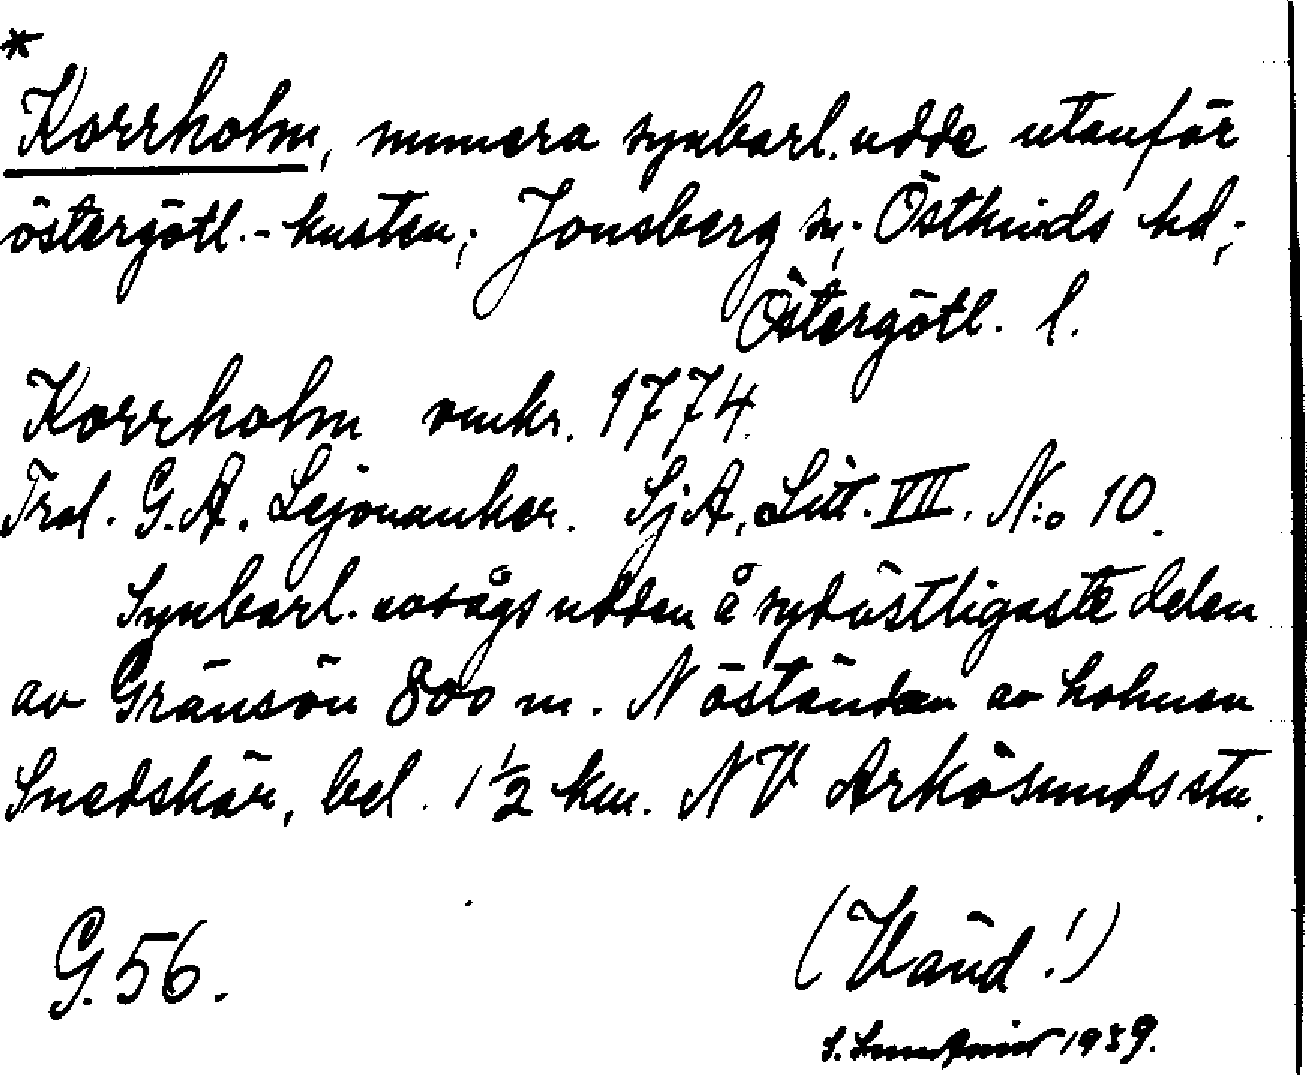 *
Korrholm, numera synbarl. udde utanför
östergötl.-kusten; Jonsberg sn; Östkinds hd;
Östergötl. l.
Korrholm omkr. 1774.
Trol. G.A. Lejonanker. SjA, Litt. VII. N:o 10.
Synbarl. avsågs udden å sydöstligaste delen
av Gränsön 800 m. N öständan av holmen
Snedskär, bel. 1½ km. NV Arkösunds stn.
G. 56.
(Vänd!)
S. 1939.